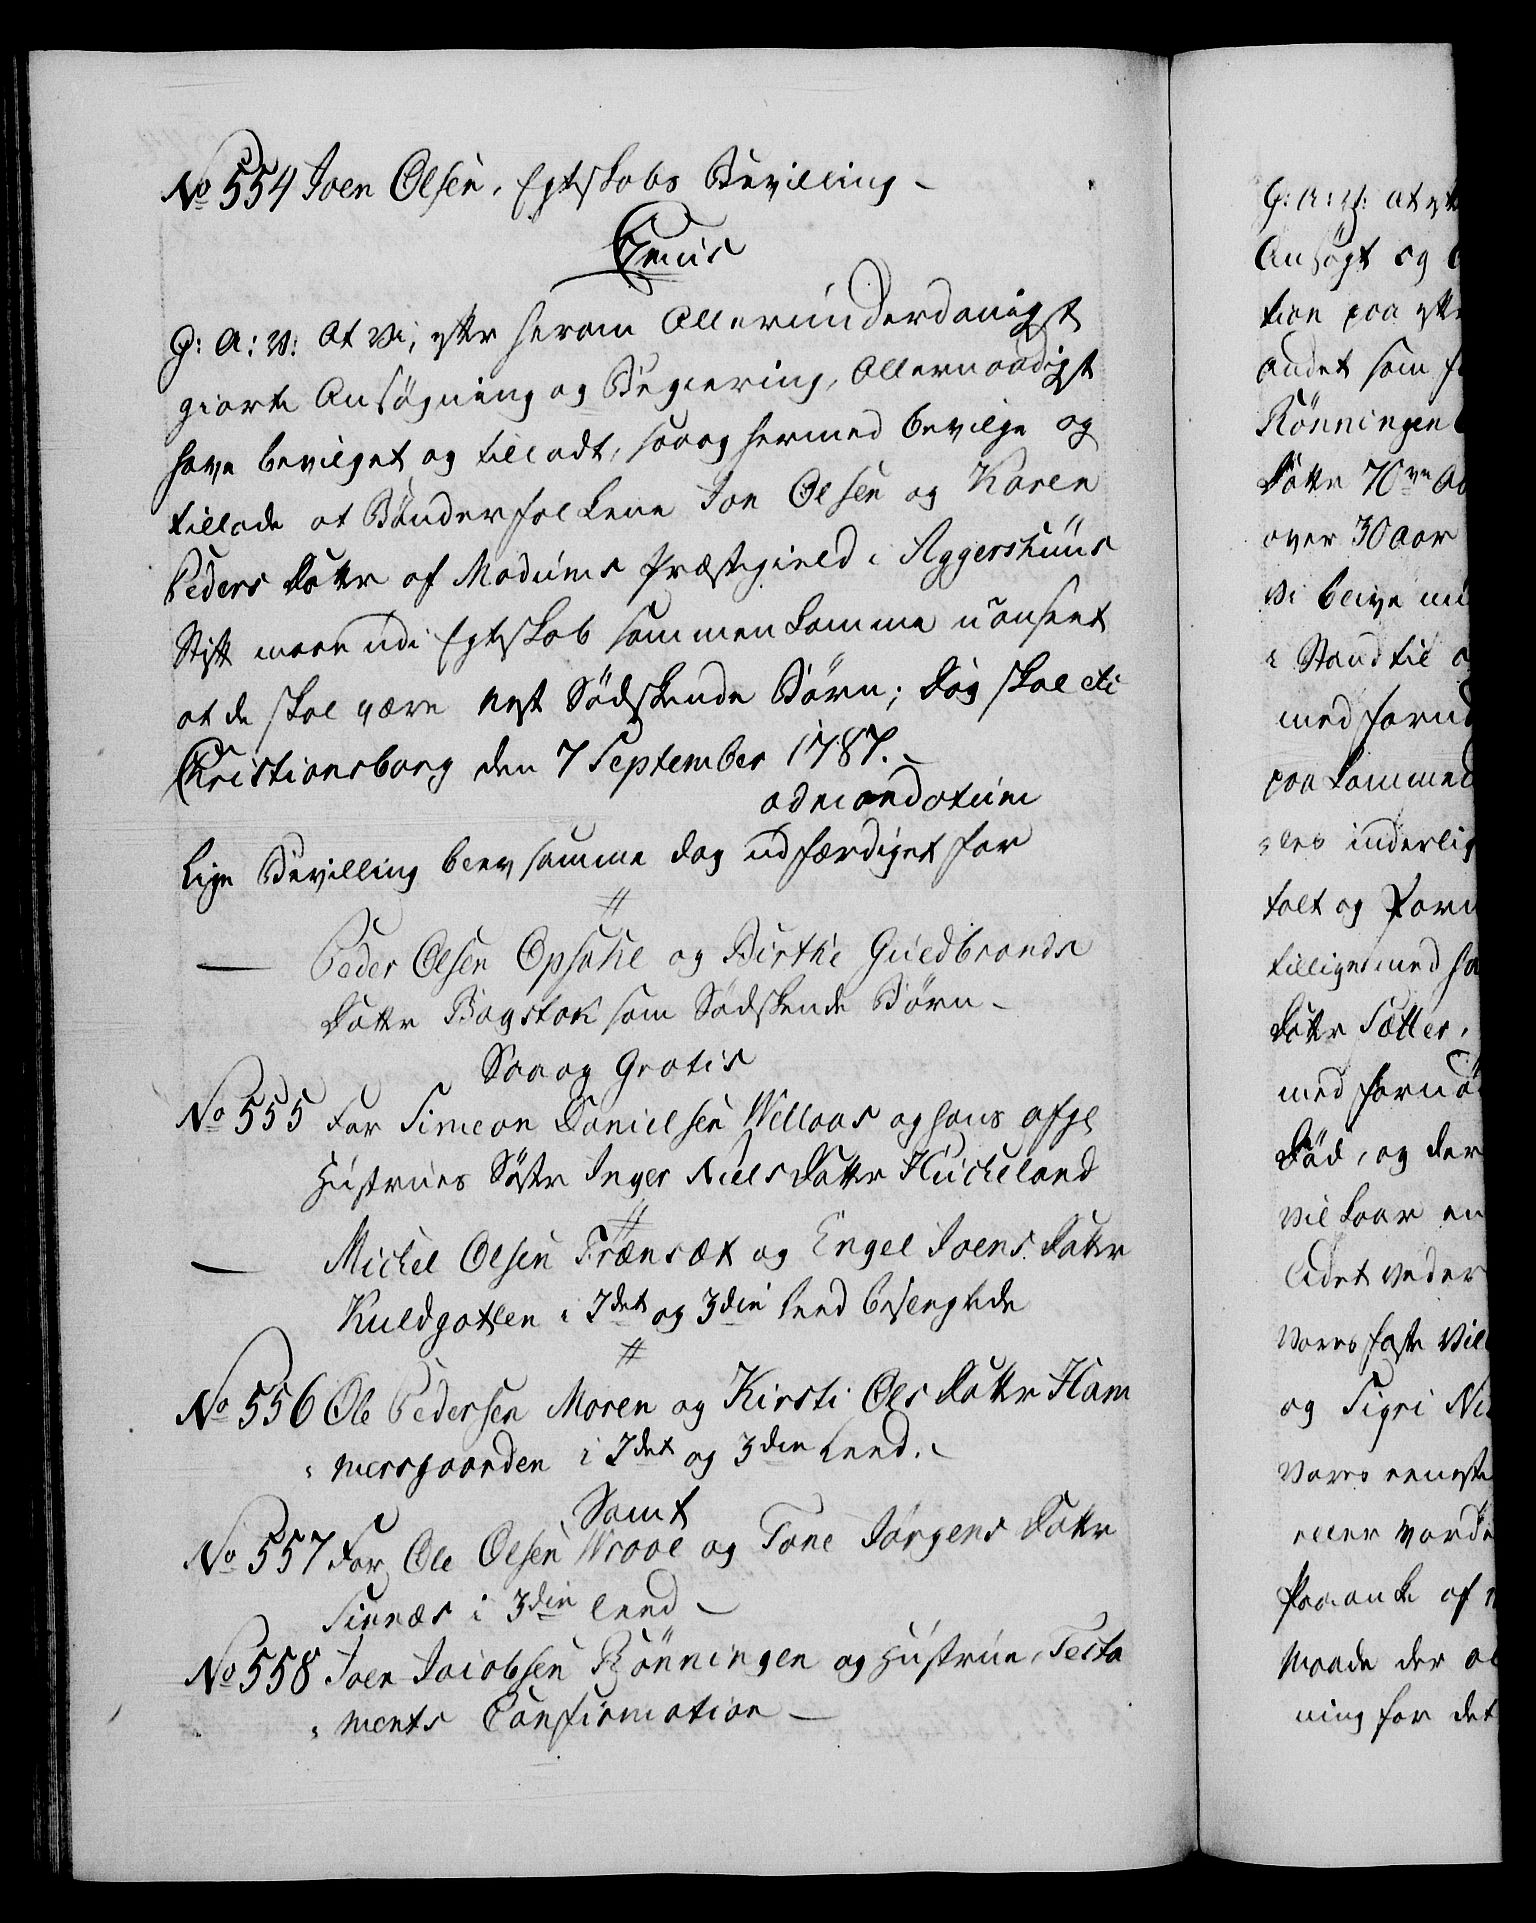 No 554 Joen Olsen, Egteskabs Bevilling -
C7mus
G: A: V: At Vi, efter herom Allerunderdanigst
giorte Ansögning og Begiering, Allernaadigst
have bevilget og tilladt, saa og hermed bevilge og
tillade at Bönderfolkene Jon Olsen og Karen
Peders Datter af Modums Præstegield i Aggershuus
Stift maae udi Egteskab sammenkomme uanseet
at de skal være nest Södskende Börn; dog skal etc
Christiansborg den 7 September 1787. -
admandatum
Lige Bevilling blev samme dag udfærdiget for
//
— Peder Olsen Opsahl og Birthe Guldbrands
Datter Bagstok som Södskende Börn -
Saa og Gratis
No 555 For Simeon Danielsen Wellaas og hans afg:
Hustrues Söster Inger Niels Datter Huckeland
//
— Michel Olsen Frænsæt og Engel Joens Datter
Kuldgatlen i 2det og 3die Leed besvogrede
//
No 556 Ole Pedersen Moren og Kirsti Ols Datter Ham
mersgaarden i 2det og 3die Leed. -
Samt
No 557 For Ole Olsen Wraal og Tone Jörgens Datter
Sinnæs i 3die Leed -
No 558 Joen Jacobsen Rönningen og Hustrue, Testa
ments Confirmation -
G: A: V: at efter
Ansögt og
tion paa
andet som
Rönningen
Datter 70ve Aar
over 30 Aar
Vi blive
i Stand til
med fornö
paakommed
inderlig
talt og
tilligemed
Datter Sætter,
med fornö
Död, og der
Vilkaar
lidet
Vores faste Vil
og Sigri Ni
Vores eeneste
eller vorde
Paaanke af
Maade der
ning for det